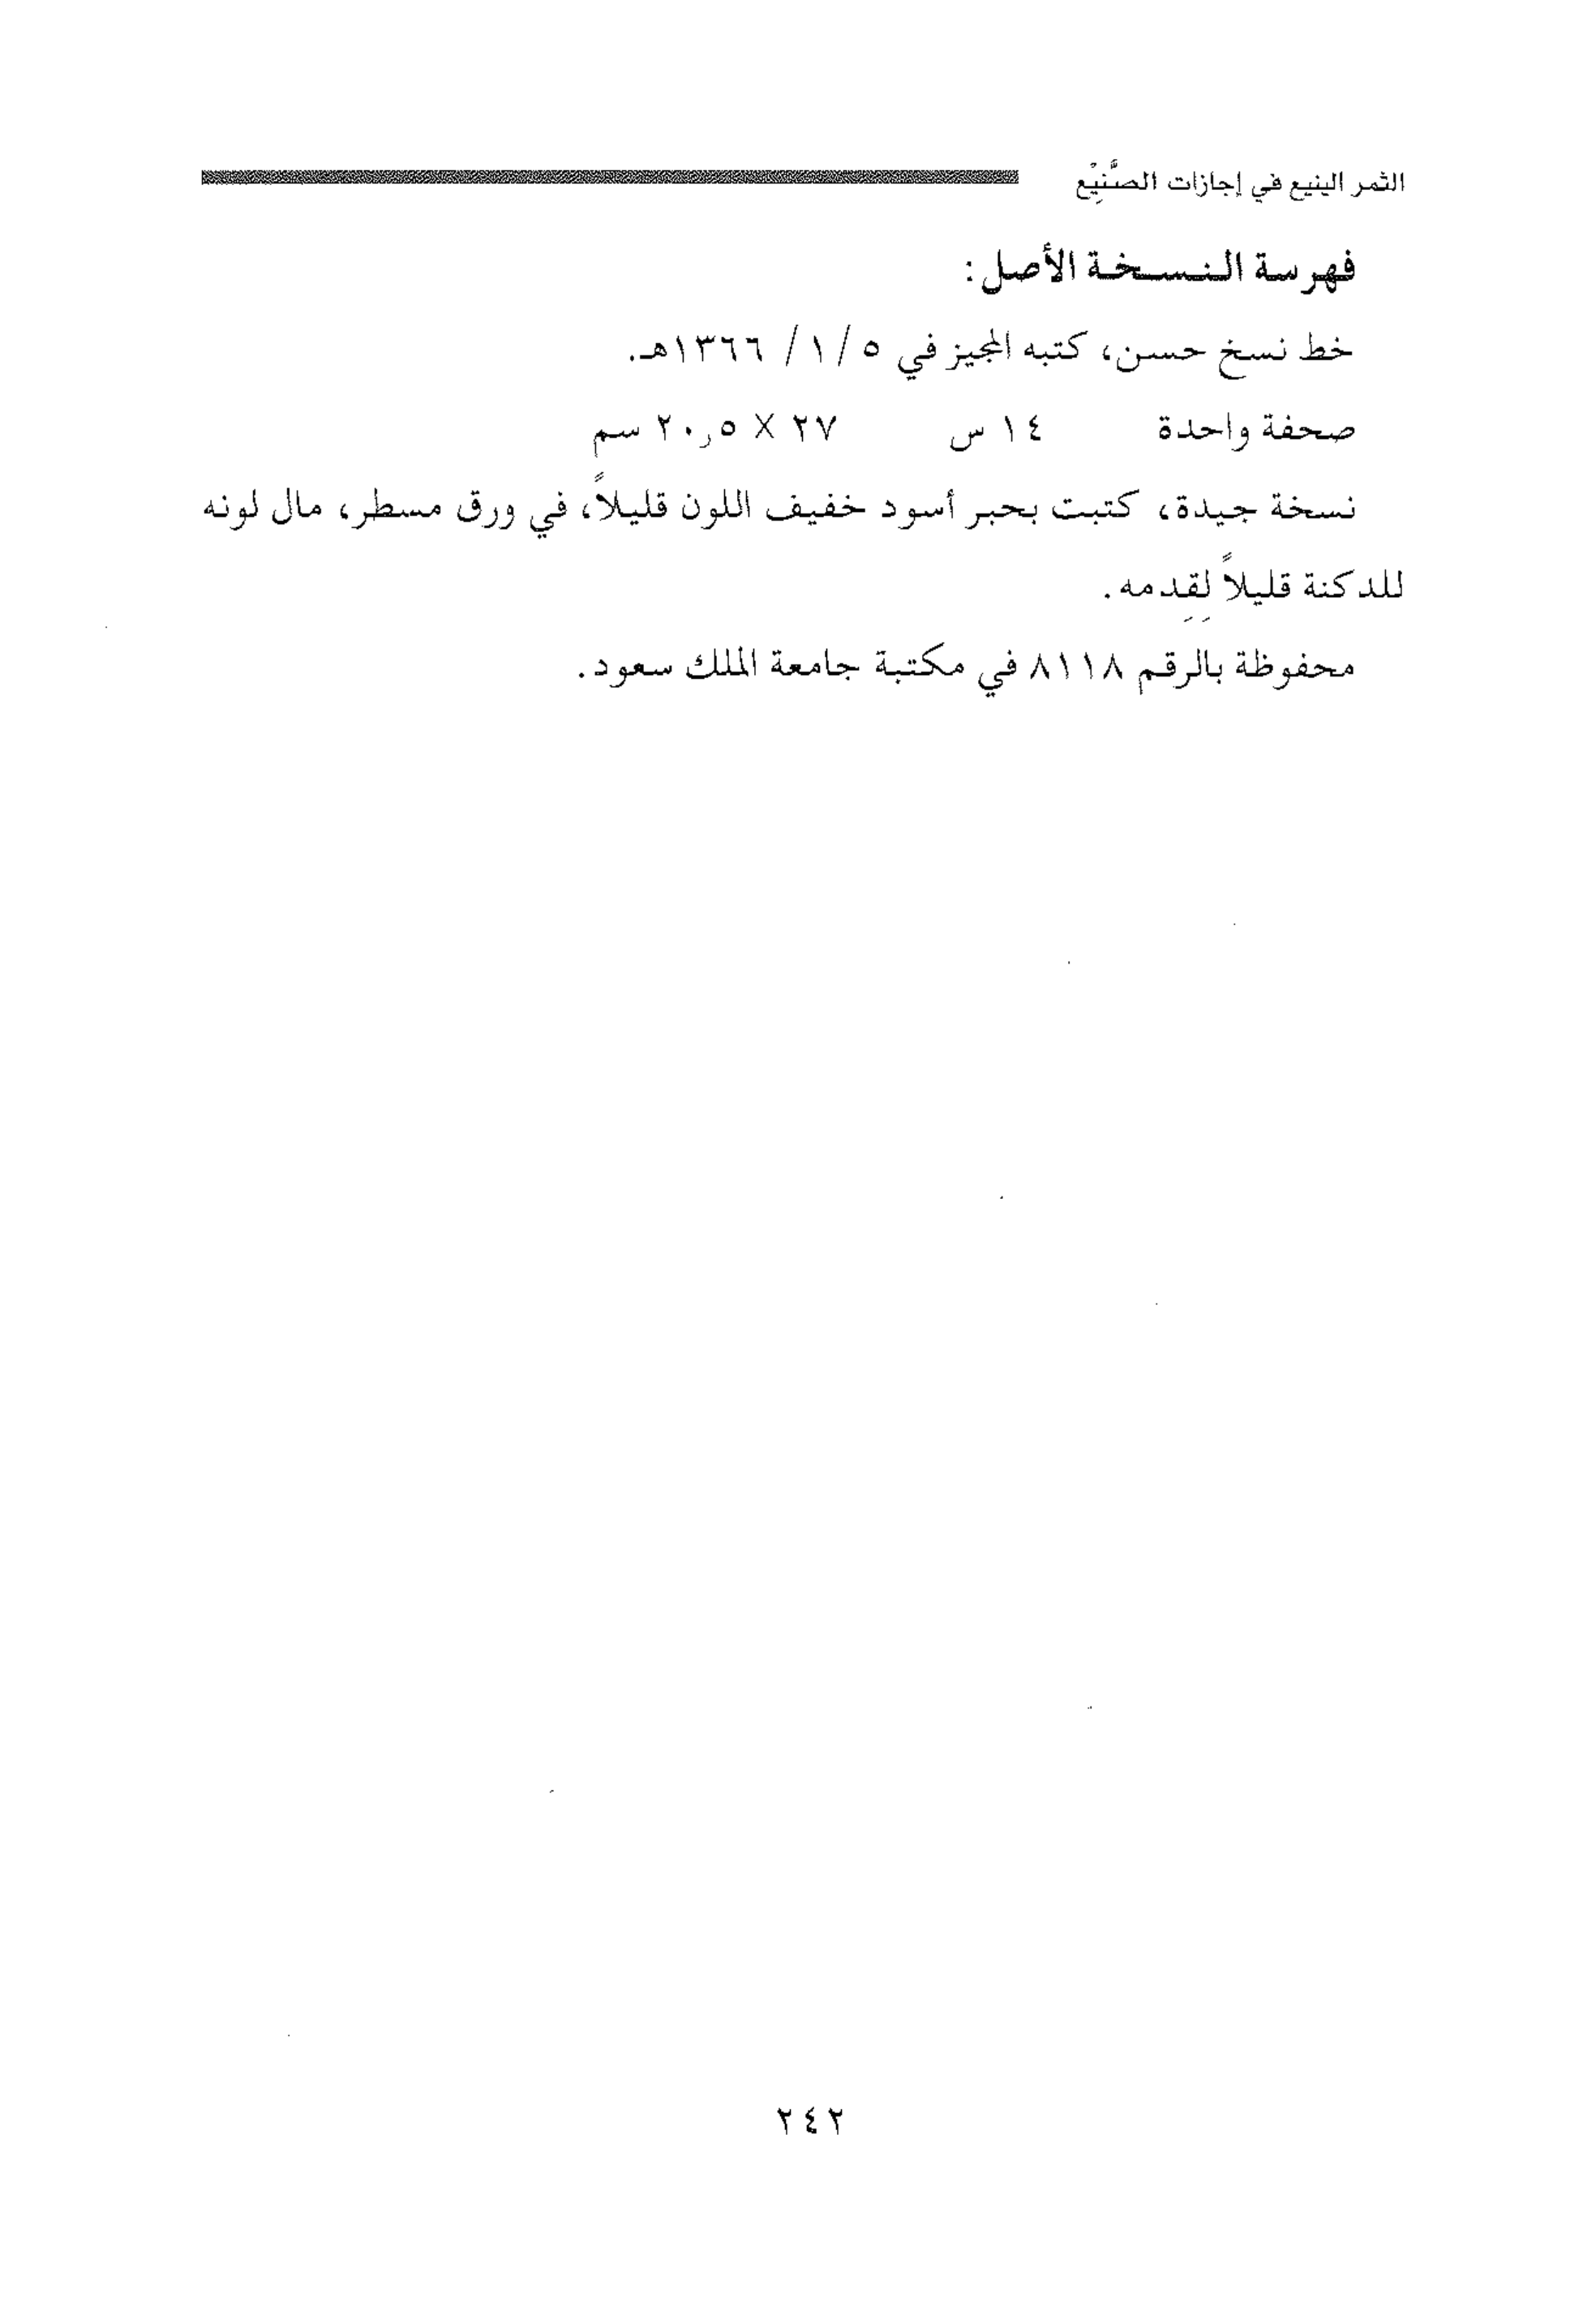 الثمر الينيع في إجازات الصَّنِيْع
فهرسة النسخة الأصل:
خط نسخ حسن، كتبه المجيز في ٥ / ١ / ١٣٦٦هـ.
صحفة واحدة ١٤ س ٢٧ × ٢٠٫٥ سم
نسخة جيدة، كتبت بحبر أسود خفيف اللون قليلاً، في ورق مسطر، مال لونه
للدكنة قليلاً لِقِدمه.
محفوظة بالرقم ٨١١٨ في مكتبة جامعة الملك سعود.
٢٤٢